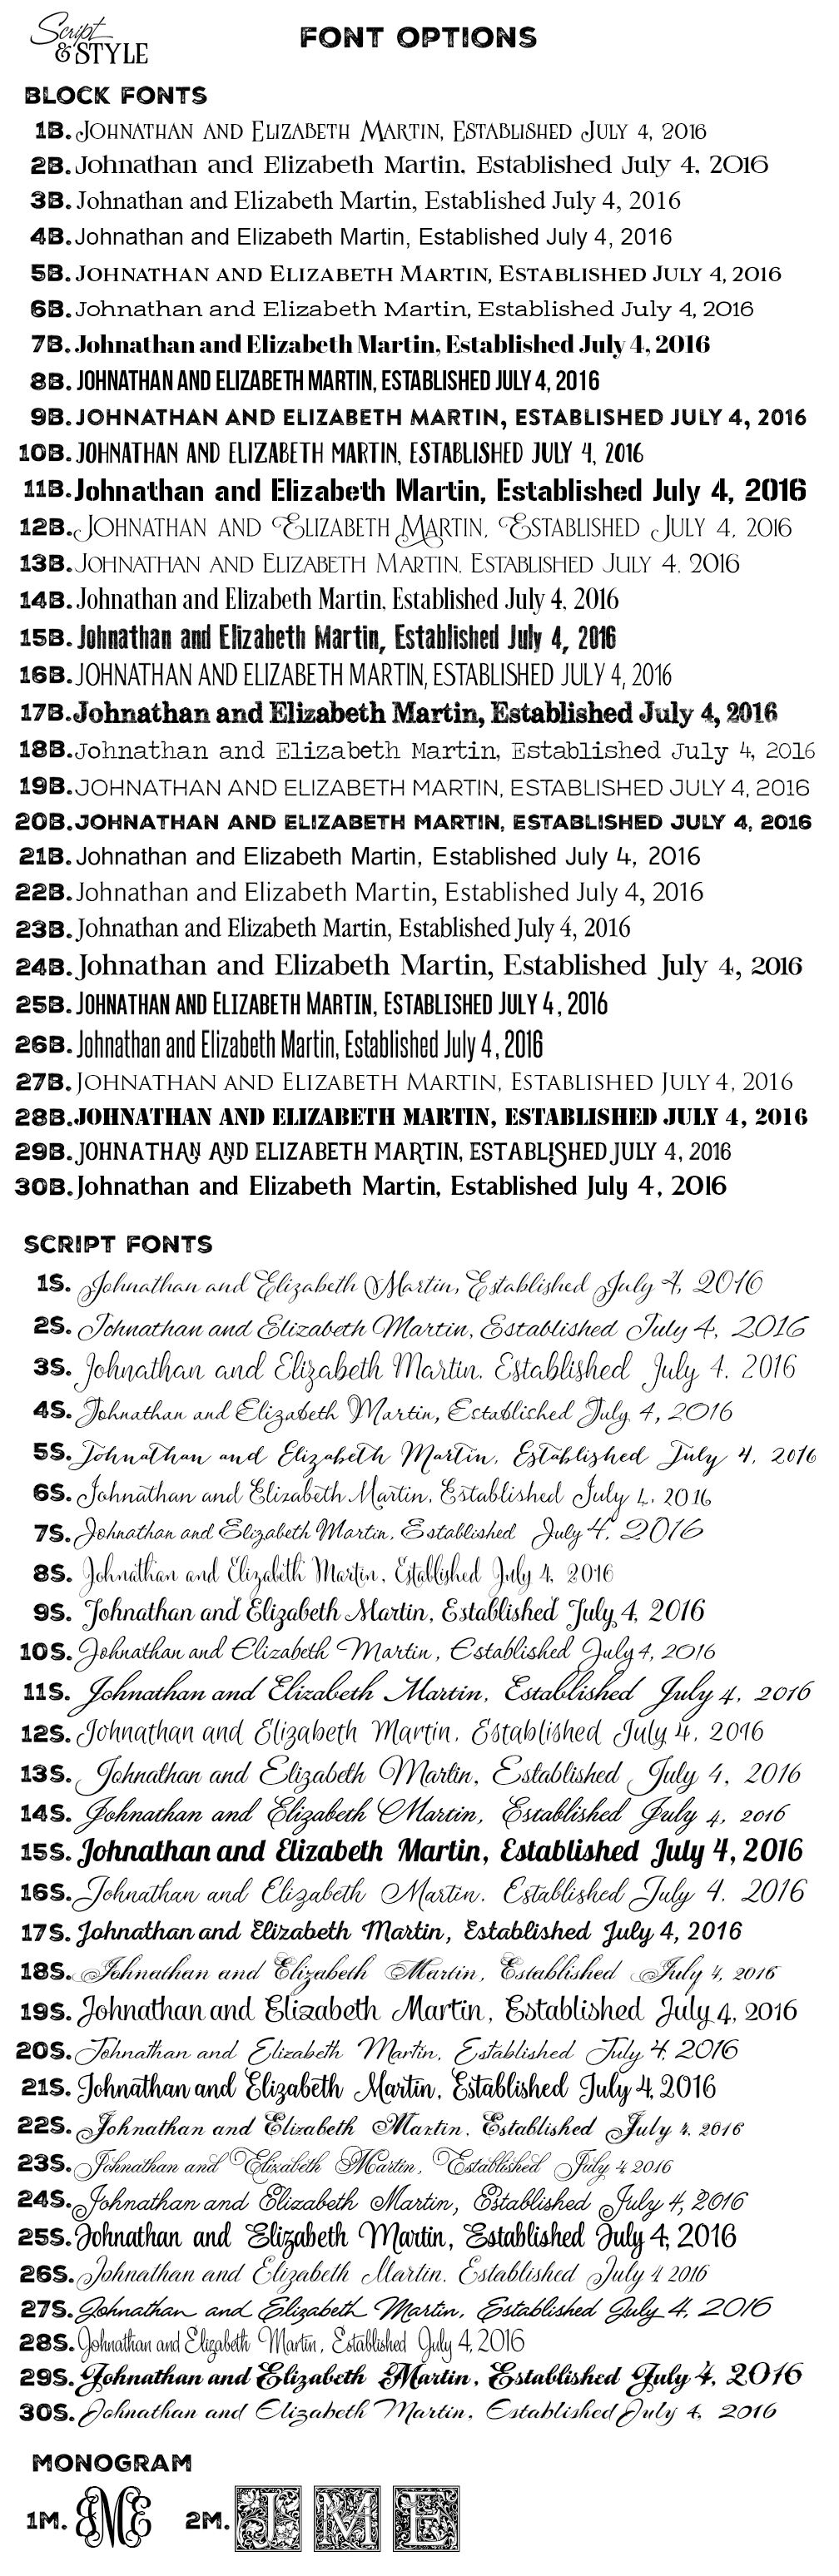 Script
& STYLE
FONT OPTIONS
BLOCK FONTS
1B. JOHNATHAN AND ELIZABETH MARTIN, ESTABLISHED JULY 4, 2016
2B. Johnathan and Elizabeth Martin, Established July 4, 2016
3B. Johnathan and Elizabeth Martin, Established July 4, 2016
4B. Johnathan and Elizabeth Martin, Established July 4, 2016
5B. JOHNATHAN AND ELIZABETH MARTIN, ESTABLISHED JULY 4, 2016
6B. Johnathan and Elizabeth Martin, Established July 4, 2016
7B. Johnathan and Elizabeth Martin, Established July 4, 2016
8B. JOHNATHAN AND ELIZABETH MARTIN, ESTABLISHED JULY 4, 2016
9B. JOHNATHAN AND ELIZABETH MARTIN, ESTABLISHED JULY 4, 2016
10B. JOHNATHAN AND ELIZABETH MARTIN, ESTABLISHED JULY 4, 2016
11B. Johnathan and Elizabeth Martin, Established July 4, 2016
12B. JOHNATHAN AND ELIZABETH MARTIN, ESTABLISHED JULY 4, 2016
13B. JOHNATHAN AND ELIZABETH MARTIN, ESTABLISHED JULY 4, 2016
14B. Johnathan and Elizabeth Martin, Established July 4, 2016
15B. Johnathan and Elizabeth Martin, Established July 4, 2016
16B. JOHNATHAN AND ELIZABETH MARTIN, ESTABLISHED JULY 4, 2016
17B. Johnathan and Elizabeth Martin, Established July 4, 2016
18B. Johnathan and Elizabeth Martin, Established July 4, 2016
19B. JOHNATHAN AND ELIZABETH MARTIN, ESTABLISHED JULY 4, 2016
20B. JOHNATHAN AND ELIZABETH MARTIN, ESTABLISHED JULY 4, 2016
21B. Johnathan and Elizabeth Martin, Established July 4, 2016
22B. Johnathan and Elizabeth Martin, Established July 4, 2016
23B. Johnathan and Elizabeth Martin, Established July 4, 2016
24B. Johnathan and Elizabeth Martin, Established July 4, 2016
25B. JOHNATHAN AND ELIZABETH MARTIN, ESTABLISHED JULY 4, 2016
26B. Johnathan and Elizabeth Martin, Established July 4, 2016
27B. JOHNATHAN AND ELIZABETH MARTIN, ESTABLISHED JULY 4, 2016
28B. JOHNATHAN AND ELIZABETH MARTIN, ESTABLISHED JULY 4, 2016
29B. JOHNATHAN AND ELIZABETH MARTIN, ESTABLISHED JULY 4, 2016
30B. Johnathan and Elizabeth Martin, Established July 4, 2016
SCRIPT FONTS
1S. Johnathan and Elizabeth Martin, Established July 4, 2016
2S. Johnathan and Elizabeth Martin, Established July 4, 2016
3S. Johnathan and Elizabeth Martin, Established July 4, 2016
4S. Johnathan and Elizabeth Martin, Established July 4, 2016
5S. Johnathan and Elizabeth Martin, Established July 4, 2016
6S. Johnathan and Elizabeth Martin, Established July 4, 2016
7S. Johnathan and Elizabeth Martin, Established July 4, 2016
8S. Johnathan and Elizabeth Martin, Established July 4, 2016
9S. Johnathan and Elizabeth Martin, Established July 4, 2016
10S. Johnathan and Elizabeth Martin, Established July 4, 2016
11S. Johnathan and Elizabeth Martin, Established July 4, 2016
12S. Johnathan and Elizabeth Martin, Established July 4, 2016
13S. Johnathan and Elizabeth Martin, Established July 4, 2016
14S. Johnathan and Elizabeth Martin, Established July 4, 2016
15S. Johnathan and Elizabeth Martin, Established July 4, 2016
16S. Johnathan and Elizabeth Martin, Established July 4, 2016
17S. Johnathan and Elizabeth Martin, Established July 4, 2016
18S. Johnathan and Elizabeth Martin, Established July 4, 2016
19S. Johnathan and Elizabeth Martin, Established July 4, 2016
20S. Johnathan and Elizabeth Martin, Established July 4, 2016
21S. Johnathan and Elizabeth Martin, Established July 4, 2016
22S. Johnathan and Elizabeth Martin, Established July 4, 2016
23S. Johnathan and Elizabeth Martin, Established July 4, 2016
24S. Johnathan and Elizabeth Martin, Established July 4, 2016
25S. Johnathan and Elizabeth Martin, Established July 4, 2016
26S. Johnathan and Elizabeth Martin, Established July 4, 2016
27S. Johnathan and Elizabeth Martin, Established July 4, 2016
28S. Johnathan and Elizabeth Martin, Established July 4, 2016
29S. Johnathan and Elizabeth Martin, Established July 4, 2016
30S. Johnathan and Elizabeth Martin, Established July 4, 2016
MONOGRAM
1M. 2M. J M E